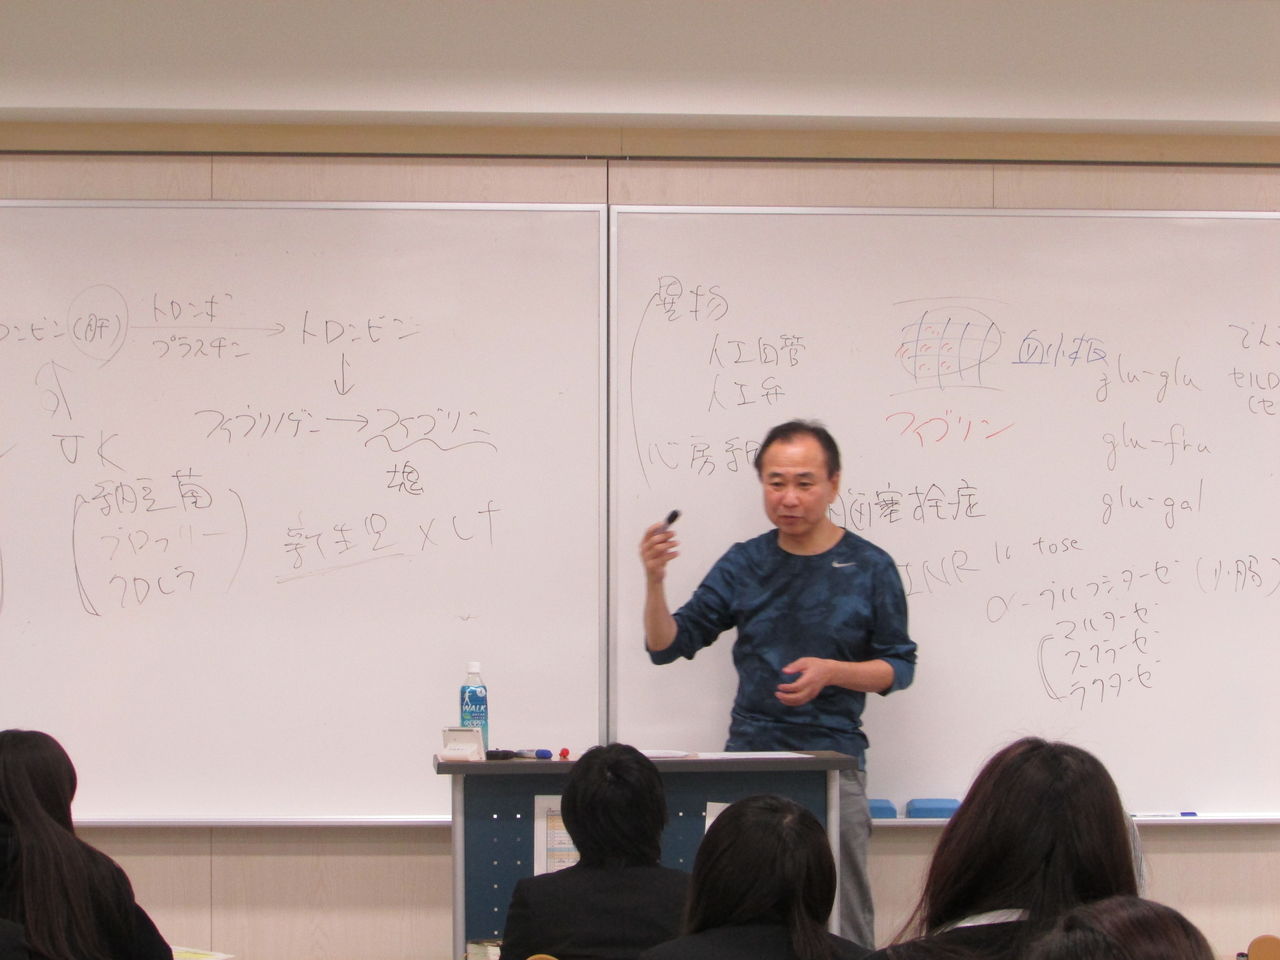 ロンビン(肝)
トロンボ
プラスチン
トロンビン
フィブリノゲン→フィブリン
塊
VK
納豆菌
ブロッコリー
クロレラ
新生児×
異物
人工血管
人工弁
心房細
フィブリン
血小板
脳塞栓症
INR
glu-glu
glu-fru
glu-gal
tose
α-グルコシダーゼ(小腸)
マルターゼ
スクラーゼ
ラクターゼ
でん
セルロ
(セ
WALK